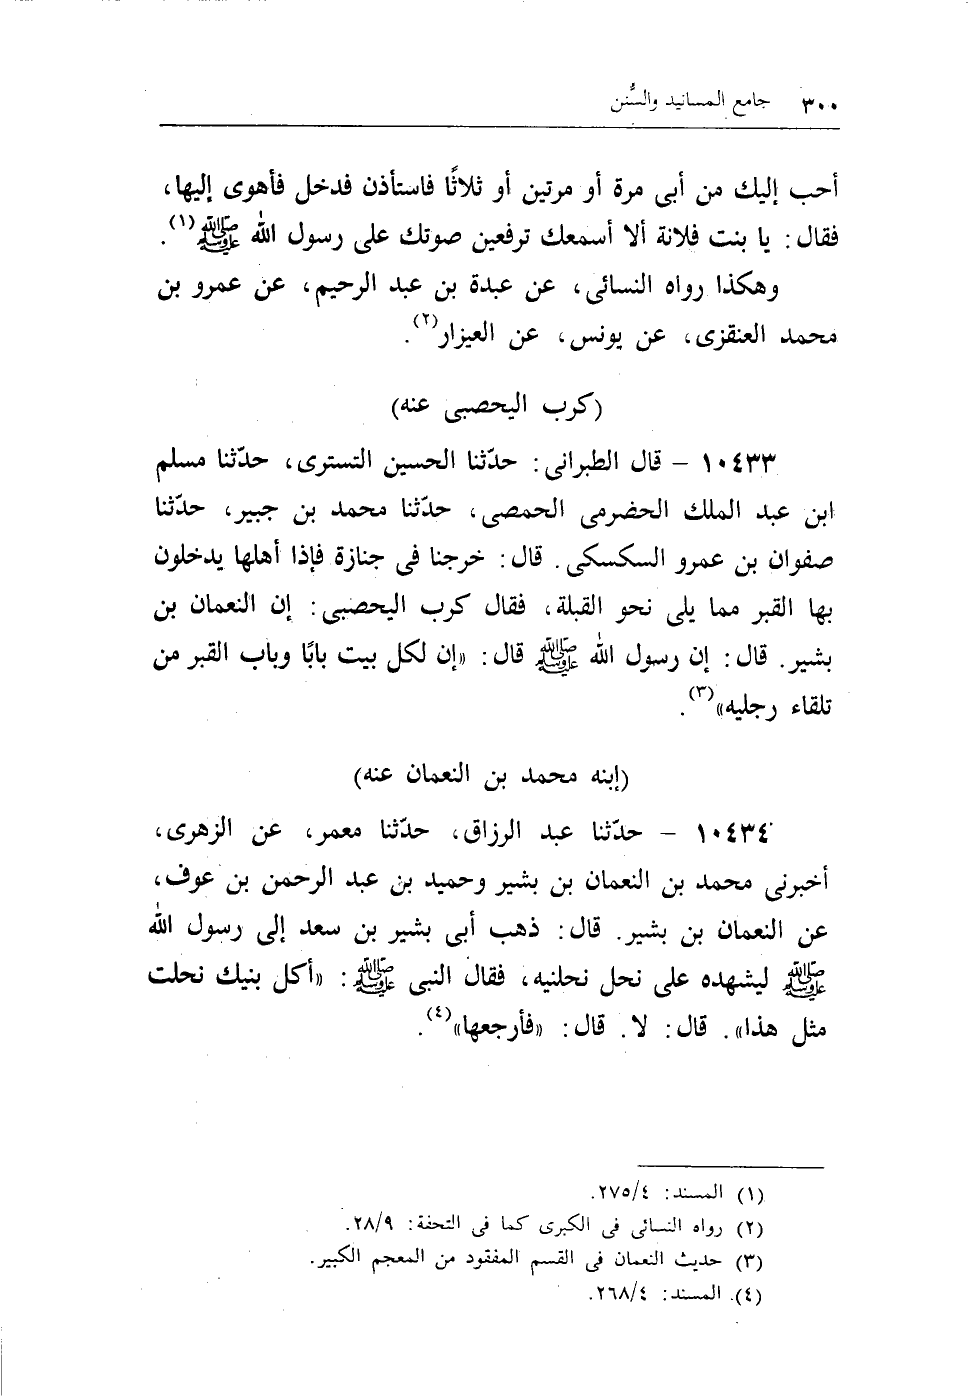 ٣٠٠ جامع المسانيد والسُّنن
أحب إليك من أبى مرة أو مرتين أو ثلاثًا فاستأذن فدخل فأهوى إليها،
فقال: يا بنت فلانة ألا أسمعك ترفعين صوتك على رسول الله ﷺ(١).
وهكذا رواه النسائى، عن عبدة بن عبد الرحيم، عن عمرو بن
محمد العنقزى، عن يونس، عن العيزار(٢).
(كرب اليحصبى عنه)
١٠٤٣٣ - قال الطبرانى: حدّثنا الحسين التسترى، حدّثنا مسلم
ابن عبد الملك الحضرمى الحمصى، حدّثنا محمد بن جبير، حدّثنا
صفوان بن عمرو السكسكى. قال: خرجنا فى جنازة فإذا أهلها يدخلون
بها القبر مما يلى نحو القبلة، فقال كرب اليحصبى: إن النعمان بن
بشير. قال: إن رسول الله ﷺ قال: «إن لكل بيت بابًا وباب القبر من
تلقاء رجليه»(٣).
(إبنه محمد بن النعمان عنه)
١٠٤٣٤ - حدّثنا عبد الرزاق، حدّثنا معمر، عن الزهرى،
أخبرنى محمد بن النعمان بن بشير وحميد بن عبد الرحمن بن عوف،
عن النعمان بن بشير. قال: ذهب أبى بشير بن سعد إلى رسول الله
ﷺ ليشهده على نحل نحلنيه، فقال النبى ﷺ: «أكل بنيك نحلت
مثل هذا». قال: لا. قال: «فأرجعها»(٤).
(١) المسند: ٢٧٥/٤.
(٢) رواه النسائى فى الكبرى كما فى التحفة: ٢٨/٩.
(٣) حديث النعمان فى القسم المفقود من المعجم الكبير.
(٤). المسند: ٢٦٨/٤.